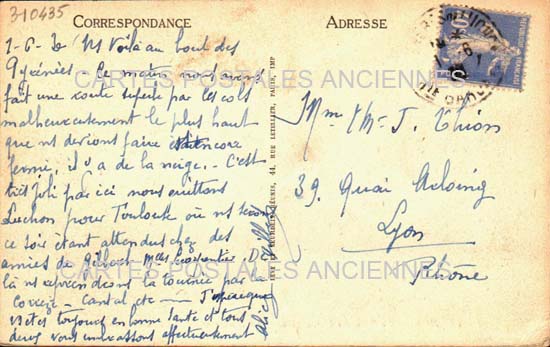 310435
CORRESPONDANCE
ADRESSE
Voilà au bout des
Pyrénées. Ce matin nous avons
fait une route superbe par les cols
malheureusement le plus haut
que ns devions faire était encore
fermé, il y a de la neige. - C'est
très joli par ici nous quittons
Luchon pour Toulouse où ns serons
ce soir étant attendus chez des
amies de Gilbert Melles Carpentier. De
là ns reprendrons la tournée par la
Corrèze - Cantal, etc -- J'espère que
vs êtes toujours en bonne santé et tous
deux vous embrassons affectueusement
Mme & Mr J. Thion
39. Quai
Lyon
Rhône
44, RUE LETELLIER, PARIS, IMP
CARTES POSTALES ANCIENNES
CARTES POSTALES ANCIENNES